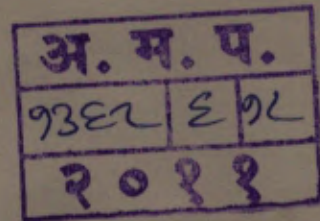 अ. म. प.
१३६२ ६ १८
२०११